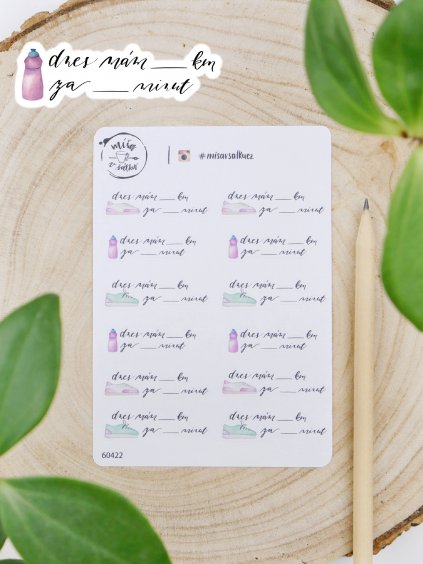 dnes mám ___ km
za ___ minut
míša
z šálků
| #misavsalkuez
dnes mám ___ km dnes mám ___ km
za ___ minut za ___ minut
dnes mám ___ km dnes mám ___ km
za ___ minut za ___ minut
dnes mám ___ km dnes mám ___ km
za ___ minut za ___ minut
dnes mám ___ km dnes mám ___ km
za ___ minut za ___ minut
dnes mám ___ km dnes mám ___ km
za ___ minut za ___ minut
dnes mám ___ km dnes mám ___ km
za ___ minut za ___ minut
60422